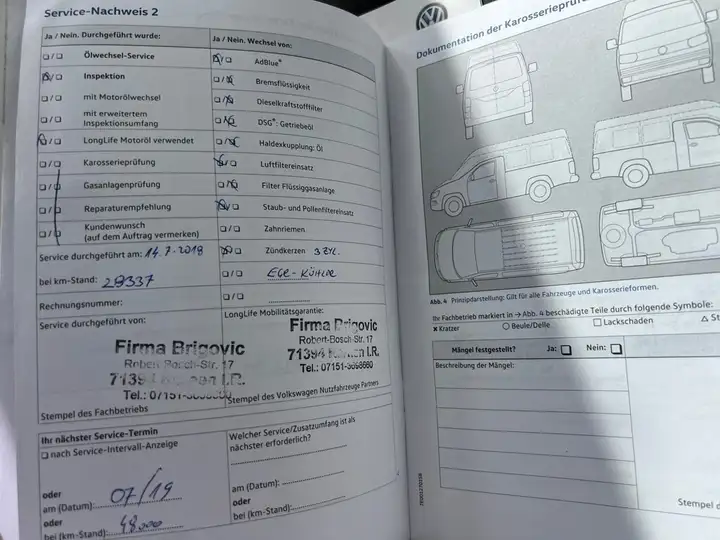 Service-Nachweis 2
Ja / Nein. Durchgeführt wurde:
Ja / Nein. Wechsel von:
Ölwechsel-Service
AdBlue®
Inspektion
Bremsflüssigkeit
mit Motorölwechsel
Dieselkraftstofffilter
mit erweitertem Inspektionsumfang
DSG®: Getriebeöl
LongLife Motoröl verwendet
Haldexkupplung: Öl
Karosserieprüfung
Luftfiltereinsatz
Gasanlagenprüfung
Filter Flüssiggasanlage
Reparaturempfehlung
Staub- und Pollenfiltereinsatz
Kundenwunsch
(auf dem Auftrag vermerken)
Zahnriemen
Service durchgeführt am: 14.7.2018
Zündkerzen 3 ZYL.
bei km-Stand: 28337
EGR-KÜHLER
Rechnungsnummer:
Service durchgeführt von:
LongLife Mobilitätsgarantie:
Firma Brigovic
Robert-Bosch-Str. 17
71394 Kernen I.R.
Tel.: 07151-3668660
Firma Brigovic
Robert-Bosch-Str. 17
71394 Kernen I.R.
Tel.: 07151-3668660
Stempel des Fachbetriebs
Stempel des Volkswagen Nutzfahrzeuge Partners
Ihr nächster Service-Termin
nach Service-Intervall-Anzeige
oder
am (Datum): 07/19
oder
bei (km-Stand): 48000
Welcher Service/Zusatzumfang ist als
nächster erforderlich?
am (Datum):
oder
bei (km-Stand):
Dokumentation der Karosserieprüf
Abb. 4 Prinzipdarstellung: Gilt für alle Fahrzeuge und Karosserieformen.
Ihr Fachbetrieb markiert in → Abb. 4 beschädigte Teile durch folgende Symbole:
x Kratzer
○ Beule/Delle
□ Lackschaden
△ St
Mängel festgestellt? Ja: Nein:
Beschreibung der Mängel:
Stempel d